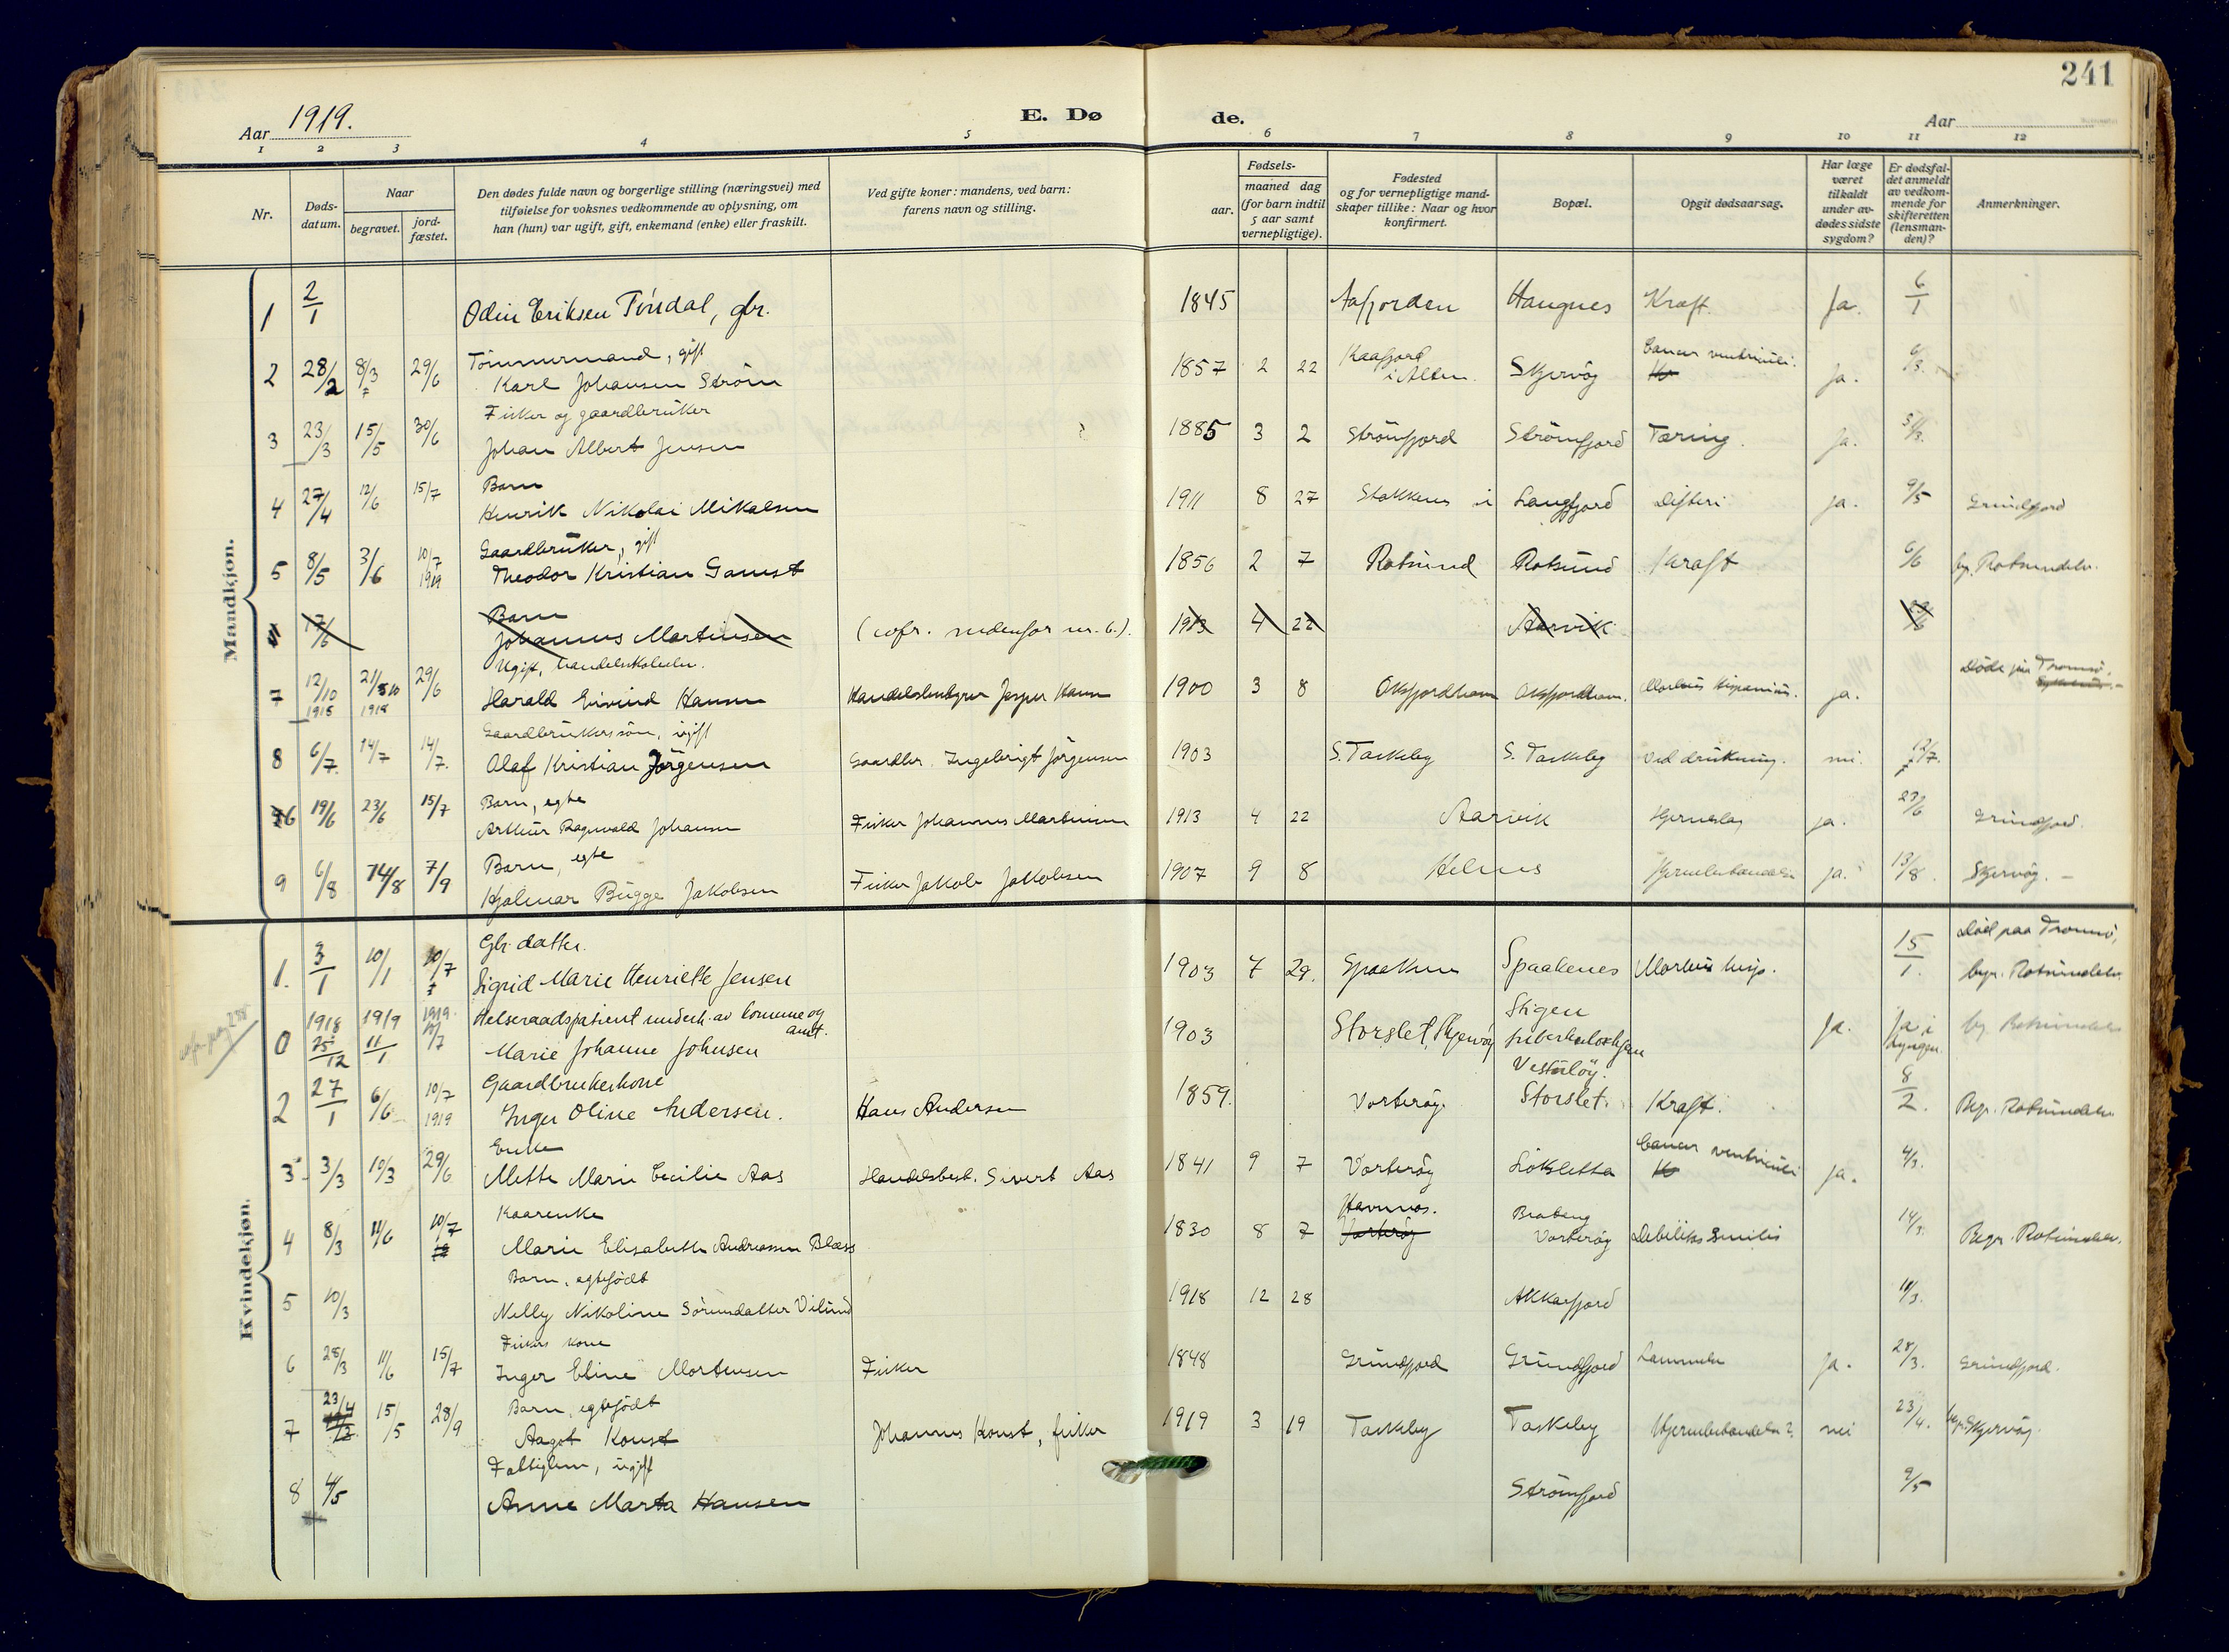 241
Aar 1919.
E. Dø de.
Aar
1 2 3 4 5 6 7 8 9 10 11 12
Nr.
Døds-datum.
Naar
begravet.
jord-fæstet.
Den dødes fulde navn og borgerlige stilling (næringsvei) med
tilføielse for voksnes vedkommende av oplysning, om
han (hun) var ugift, gift, enkemand (enke) eller fraskilt.
Ved gifte koner: mandens, ved barn:
farens navn og stilling.
Fødsels-
aar.
maaned dag
(for barn indtil
5 aar samt
vernepligtige).
Fødested
og for vernepligtige mand-
skaper tillike: Naar og hvor
konfirmert.
Bopæl.
Opgit dødsaarsag.
Har læge
været
tilkaldt
under av-
dødes sidste
sygdom?
Er dødsfal-
det anmeldt
av vedkom-
mende for
skifteretten
(lensman-
den)?
Anmerkninger.
Mandkjøn.
1 2/1 Odin Eriksen Tindal, gbr. 1845 Aafjorden Haugnes Kræft. Ja. 6/1
Tömmermand, gift
2 28/2 8/3 29/6 Karl Johansen Ström 1857 2 22 Kaafjord i Alten Skjervöy Cancer ventriculi. ja.
Fisker og gaardbruker
3 23/3 15/5 30/6 Johan Albert Jensen 1885 3 2 Strömfjord Strömfjord Tæring. ja.
Barn
4 27/4 12/6 15/7 Henrik Nikolai Mikalsen 1911 8 27 Stakkenes i Langfjord Difteri ja. 9/5 Grundfjord
Gaardbruker, gift
5 8/5 3/6 10/7 1919 Theodor Kristian Gamst 1856 2 7 Rotsund Rotsund Kræft 6/6 Rotsundelv.
Barn
17/6 Johannes Martinsen (cofr. nedenfor nr. 6.). 1913 4 22 Aarvik
Ugift, handelsskoleelev.
7 12/10 1918 21/10 1918 29/6 Harald Eivind Hansen Handelsbestyrer Jesper Hansen 1900 3 8 Oksfjordhavn Oksfjordhavn. Morbus hispanicus. ja. Döde paa Tromsö.
Gaardbrukerssön, ugift
8 6/7 14/7 14/7. Olaf Kristian Jörgensen Gaardbr. Ingebrigt Jörgensen 1903 S. Taskeby S. Taskeby Ved drukning. nei. 12/7.
Barn, egte
6 19/6 23/6 15/7 Arthur Ragnvald Johansen Fisker Johannes Martinsen 1913 4 22 Aarvik Hjerneslag ja. 27/6 Grundfjord.
Barn, egte
9 6/8 14/8 7/9 Hjalmar Bugge Jakobsen Fisker Jakob Jakobsen 1907 9 8 Helnes Hjernebetændelse ja. 13/8. Skjervöy.
Kvindekjøn.
Gbr. datter.
1. 3/1 10/1 10/7 Sigrid Marie Henriette Jensen 1903 7 29. Spaaknes Spaakenes Morbus hisp. 15/1. Död paa Tromsö, begr. Rotsundelv.
Helseraadspatient underh. av kommune og amt.
0 1918 25/12 1919 11/1 1919 10/7 Marie Johanne Johnsen 1903 Storslet, Skjervöy Stigen tuberkuloshjem Ja. Ja i Lyngen. bg. Rotsundelv
Gaardbrukerkone
2 27/1 6/6 10/7 1919 Inger Oline Andersen. Hans Andersen 1859. Vorteröy. Storslet. Kræft. 8/2. Begr. Rotsundelv
Enke
3 3/3 10/3 29/6 Mette Marie Cecilie Aas Handelsbest. Sivert Aas 1841 9 7 Vorteröy Löksletta Cancer ventriculi ja. 4/3.
Kaarenke
4 8/3 11/6 10/7 Marie Elisabeth Andreassen Blæss 1830 8 7 Havnnes. Vorteröy Vorteröy Debilitas senilis 14/3. Begr. Rotsundelv.
Barn, egtefödt
5 10/3 Nelly Nikoline Sörensdatter Viklund 1918 12 28 Akkarfjord 11/3.
Fiskers kone
6 28/3 11/6 15/7 Inger Eline Mortensen Fisker 1848 Grundfjord Grundfjord Lammelse ja. 28/3. Grundfjord.
Barn, egtefödt
7 23/4 15/5 28/9 Aagot Konst Johannes Konst, fisker 1919 3 19 Taskeby Taskeby Hjernebetændelse? nei 23/4. begr. Skjervöy.
Fattiglem, ugift
8 4/5 Anne Marta Hansen Strömfjord 9/5